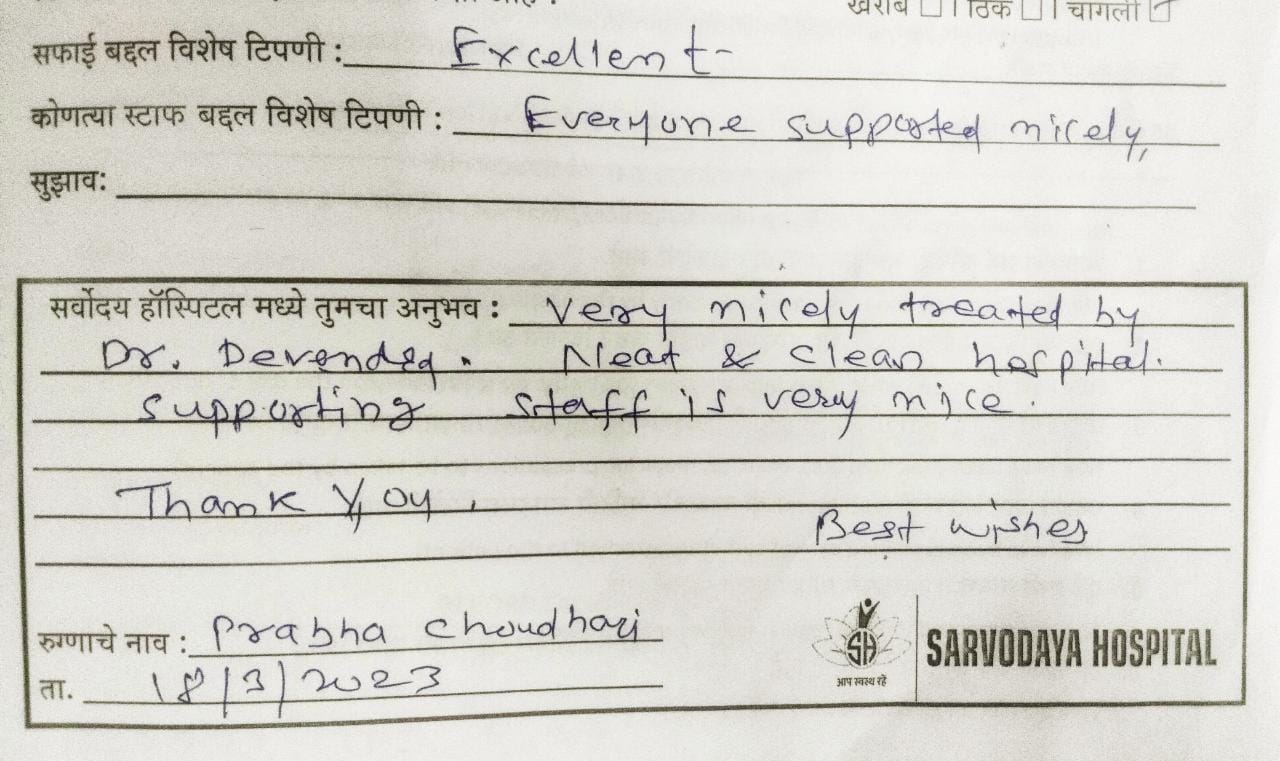 खराब □ | ठिक □ | चांगली ☑
सफाई बद्दल विशेष टिपणी : Excellent
कोणत्या स्टाफ बद्दल विशेष टिपणी : Everyone supported nicely,
सुझाव:
सर्वोदय हॉस्पिटल मध्ये तुमचा अनुभव : Very nicely treated by
Dr. Devendra. Neat & clean hospital.
supporting staff is very nice.
Thank you.
Best wishes
रुग्णाचे नाव : Prabha Choudhari
ता. 18/3/2023
SH
आप स्वस्थ रहें
SARVODAYA HOSPITAL